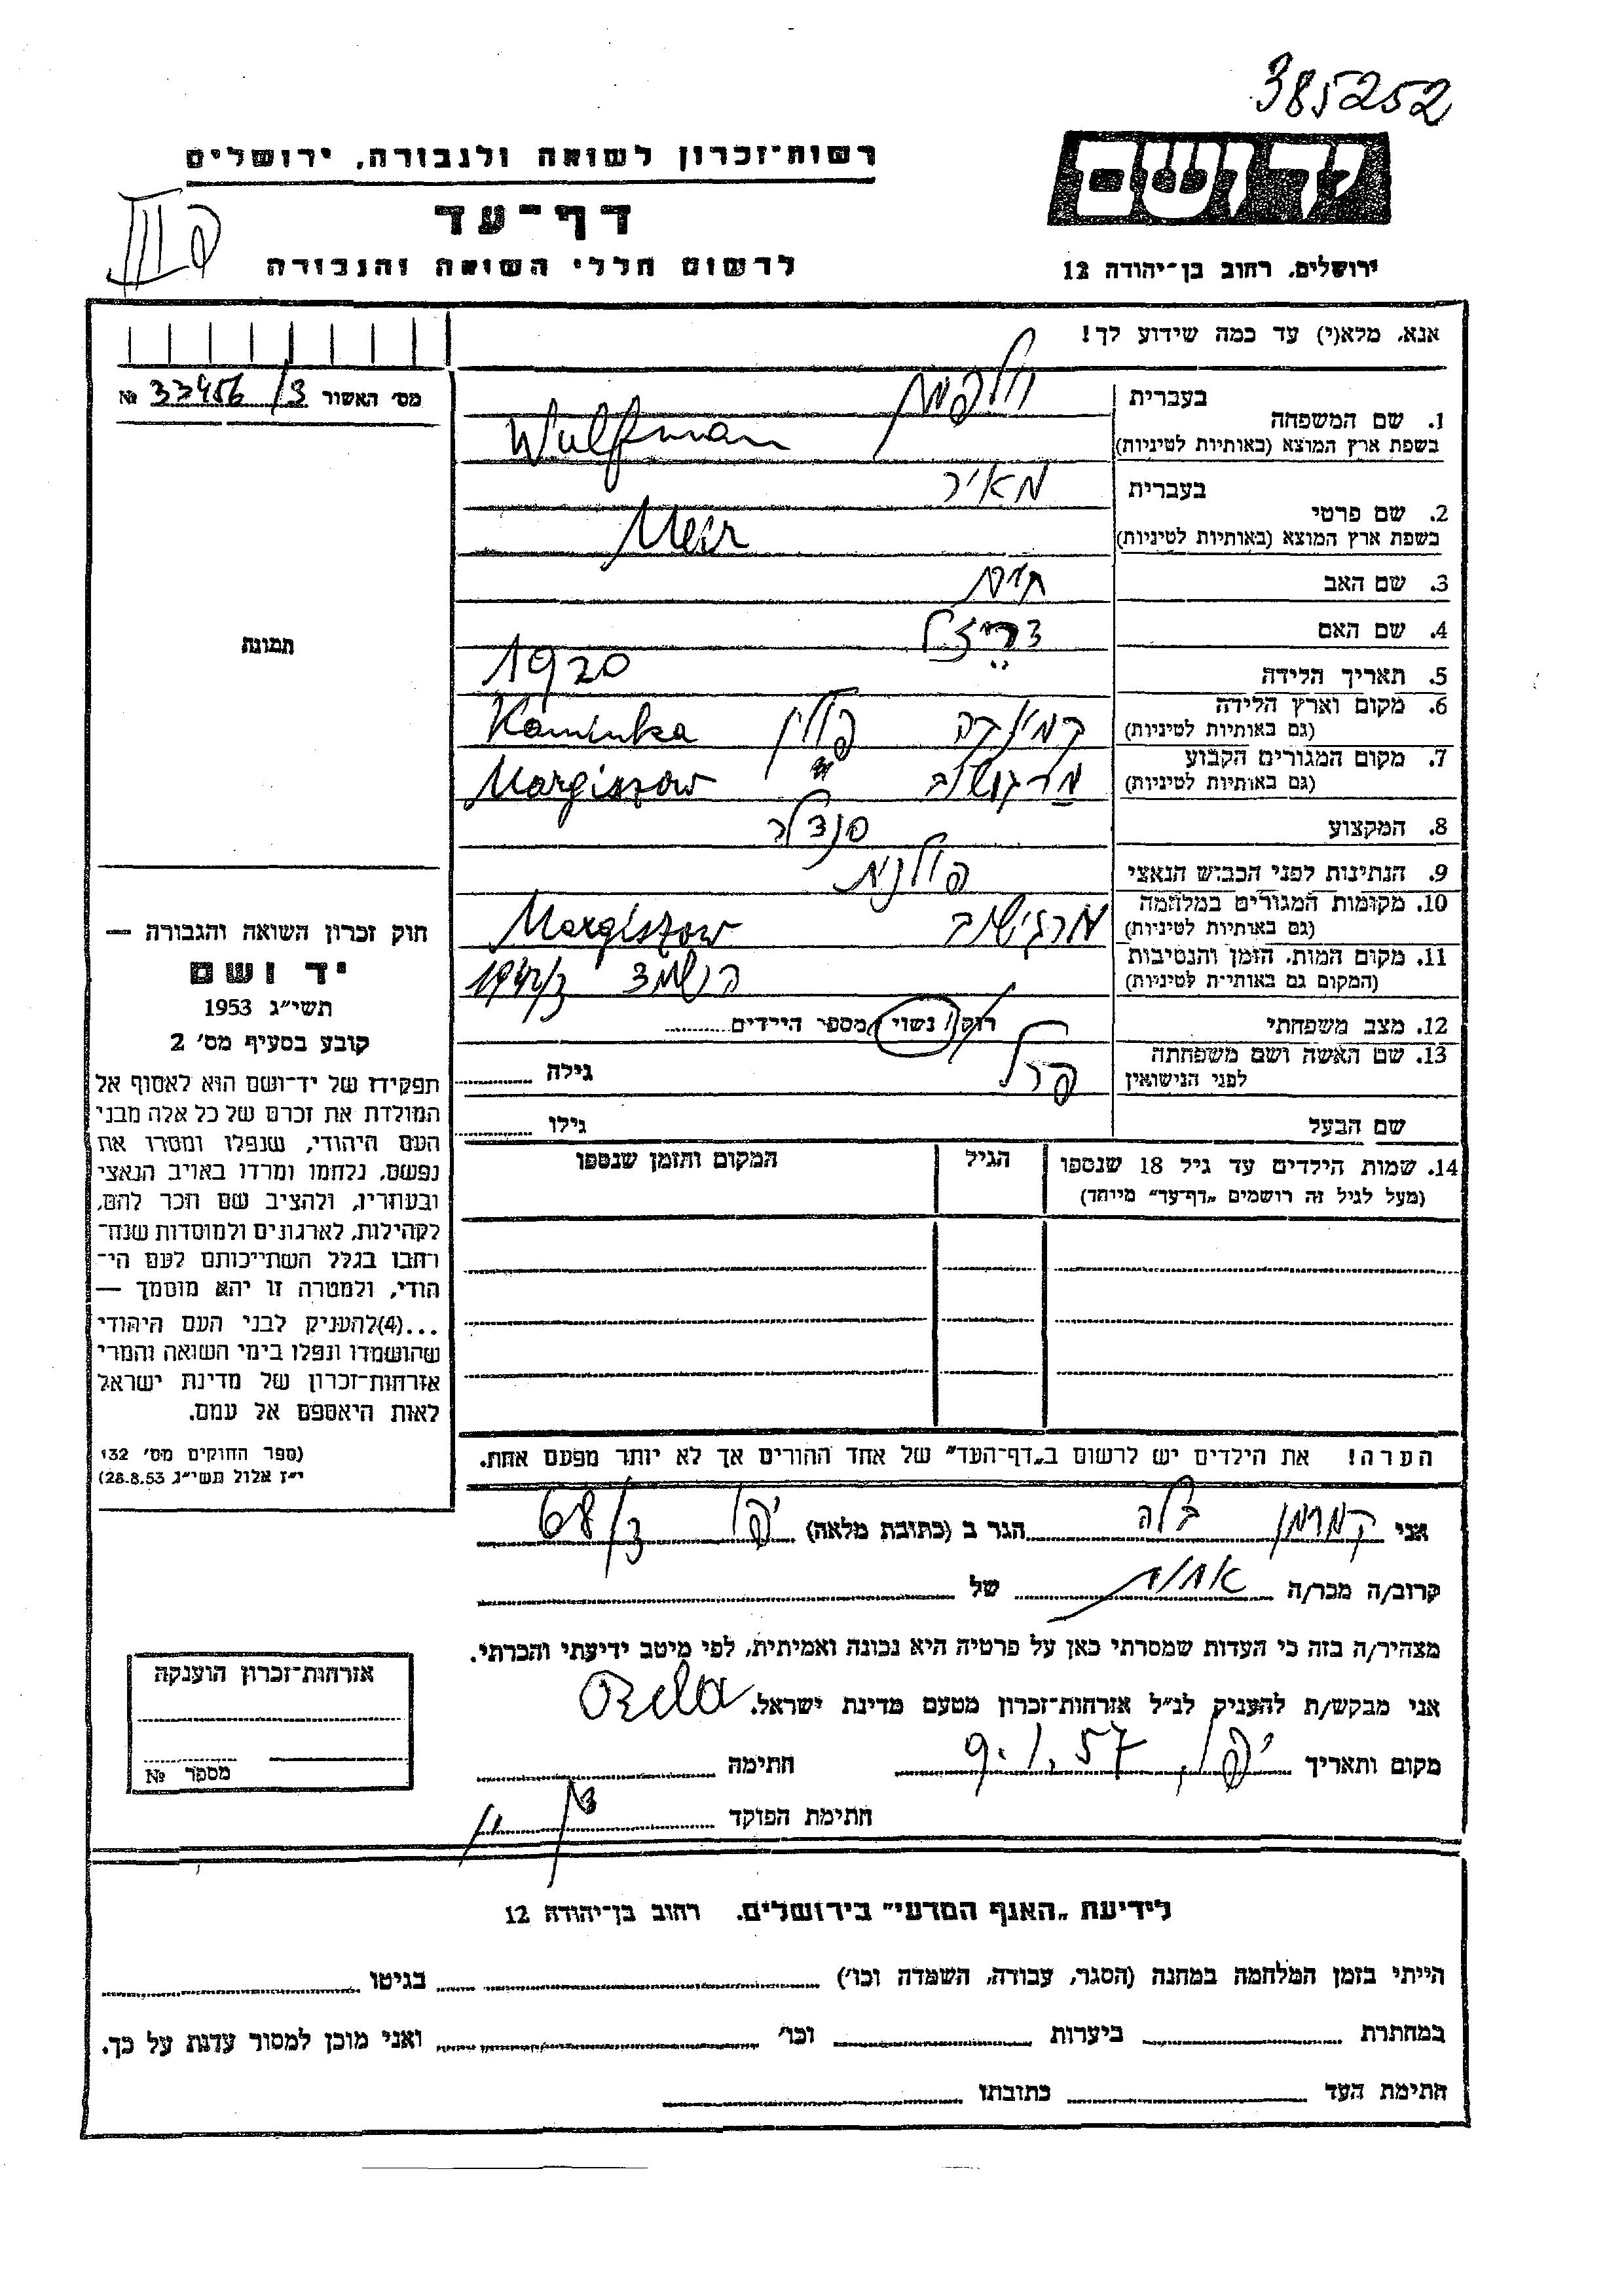 385252
רשות־זכרון לשואה ולגבורה, ירושלים
יד ושם
דף־עד
לרשום חללי השואה והגבורה
ירושלים, רחוב בן־יהודה 12
אנא, מלא(י) עד כמה שידוע לך!
מס' האשור 33456/3 №
1. שם המשפחה
בעברית
בשפת ארץ המוצא (באותיות לטיניות) Wulfman
2. שם פרטי
בעברית מאיר
בשפת ארץ המוצא (באותיות לטיניות) Meir
3. שם האב
4. שם האם
5. תאריך הלידה 1920
6. מקום וארץ הלידה
(גם באותיות לטיניות) קמינקה פולין Kaminka
7. מקום המגורים הקבוע
(גם באותיות לטיניות) מרגושוב " Margiszow
8. המקצוע סנדלר
9. הנתינות לפני הכבוש הנאצי פולנית
10. מקומות המגורים במלחמה
(גם באותיות לטיניות) מרגישוב Margiszow
11. מקום המות, הזמן והנסיבות
(המקום גם באותיות לטיניות) הושמד 1942/3
12. מצב משפחתי רווק / נשוי / מספר הילדים
13. שם האשה ושם משפחתה
לפני הנישואין פרל גילה
שם הבעל גילו
14. שמות הילדים עד גיל 18 שנספו הגיל המקום והזמן שנספו
(מעל לגיל זה רושמים "דף־עד" מיוחד)
הערה! את הילדים יש לרשום ב"דף־העד" של אחד ההורים אך לא יותר מפעם אחת.
תמונת
חוק זכרון השואה והגבורה —
יד ושם
תשי"ג 1953
קובע בסעיף מס' 2
תפקידו של יד־ושם הוא לאסוף אל
המולדת את זכרם של כל אלה מבני
העם היהודי, שנפלו ומסרו את
נפשם, נלחמו ומרדו באויב הנאצי
ובעוזריו, ולהציב שם וזכר להם,
לקהילות, לארגונים ולמוסדות שנח־
רבו בגלל השתייכותם לעם הי־
הודי, ולמטרה זו יהא מוסמך —
...(4)להעניק לבני העם היהודי
שהושמדו ונפלו בימי השואה והמרי
אזרחות־זכרון של מדינת ישראל
לאות היאספם אל עמם.
(ספר החוקים מס' 132
י"ז אלול תשי"ג 28.8.53)
אני קמרמן בלה הגר ב (כתובת מלאה) יפו 68/3
קרוב/ה מכר/ה אחות של
מצהיר/ה בזה כי העדות שמסרתי כאן על פרטיה היא נכונה ואמיתית, לפי מיטב ידיעתי והכרתי.
אני מבקש/ת להעניק לנ"ל אזרחות־זכרון מטעם מדינת ישראל. Bela
מקום ותאריך יפו, 9.1.57 חתימה
חתימת הפוקד
אזרחות־זכרון הוענקה
מספר №
לידיעת "האגף המדעי" בירושלים. רחוב בן־יהודה 12
הייתי בזמן המלחמה במחנה (הסגר, עבודה, השמדה וכו') בגיטו
במחתרת ביערות וכו' ואני מוכן למסור עדות על כך.
חתימת העד כתובתו